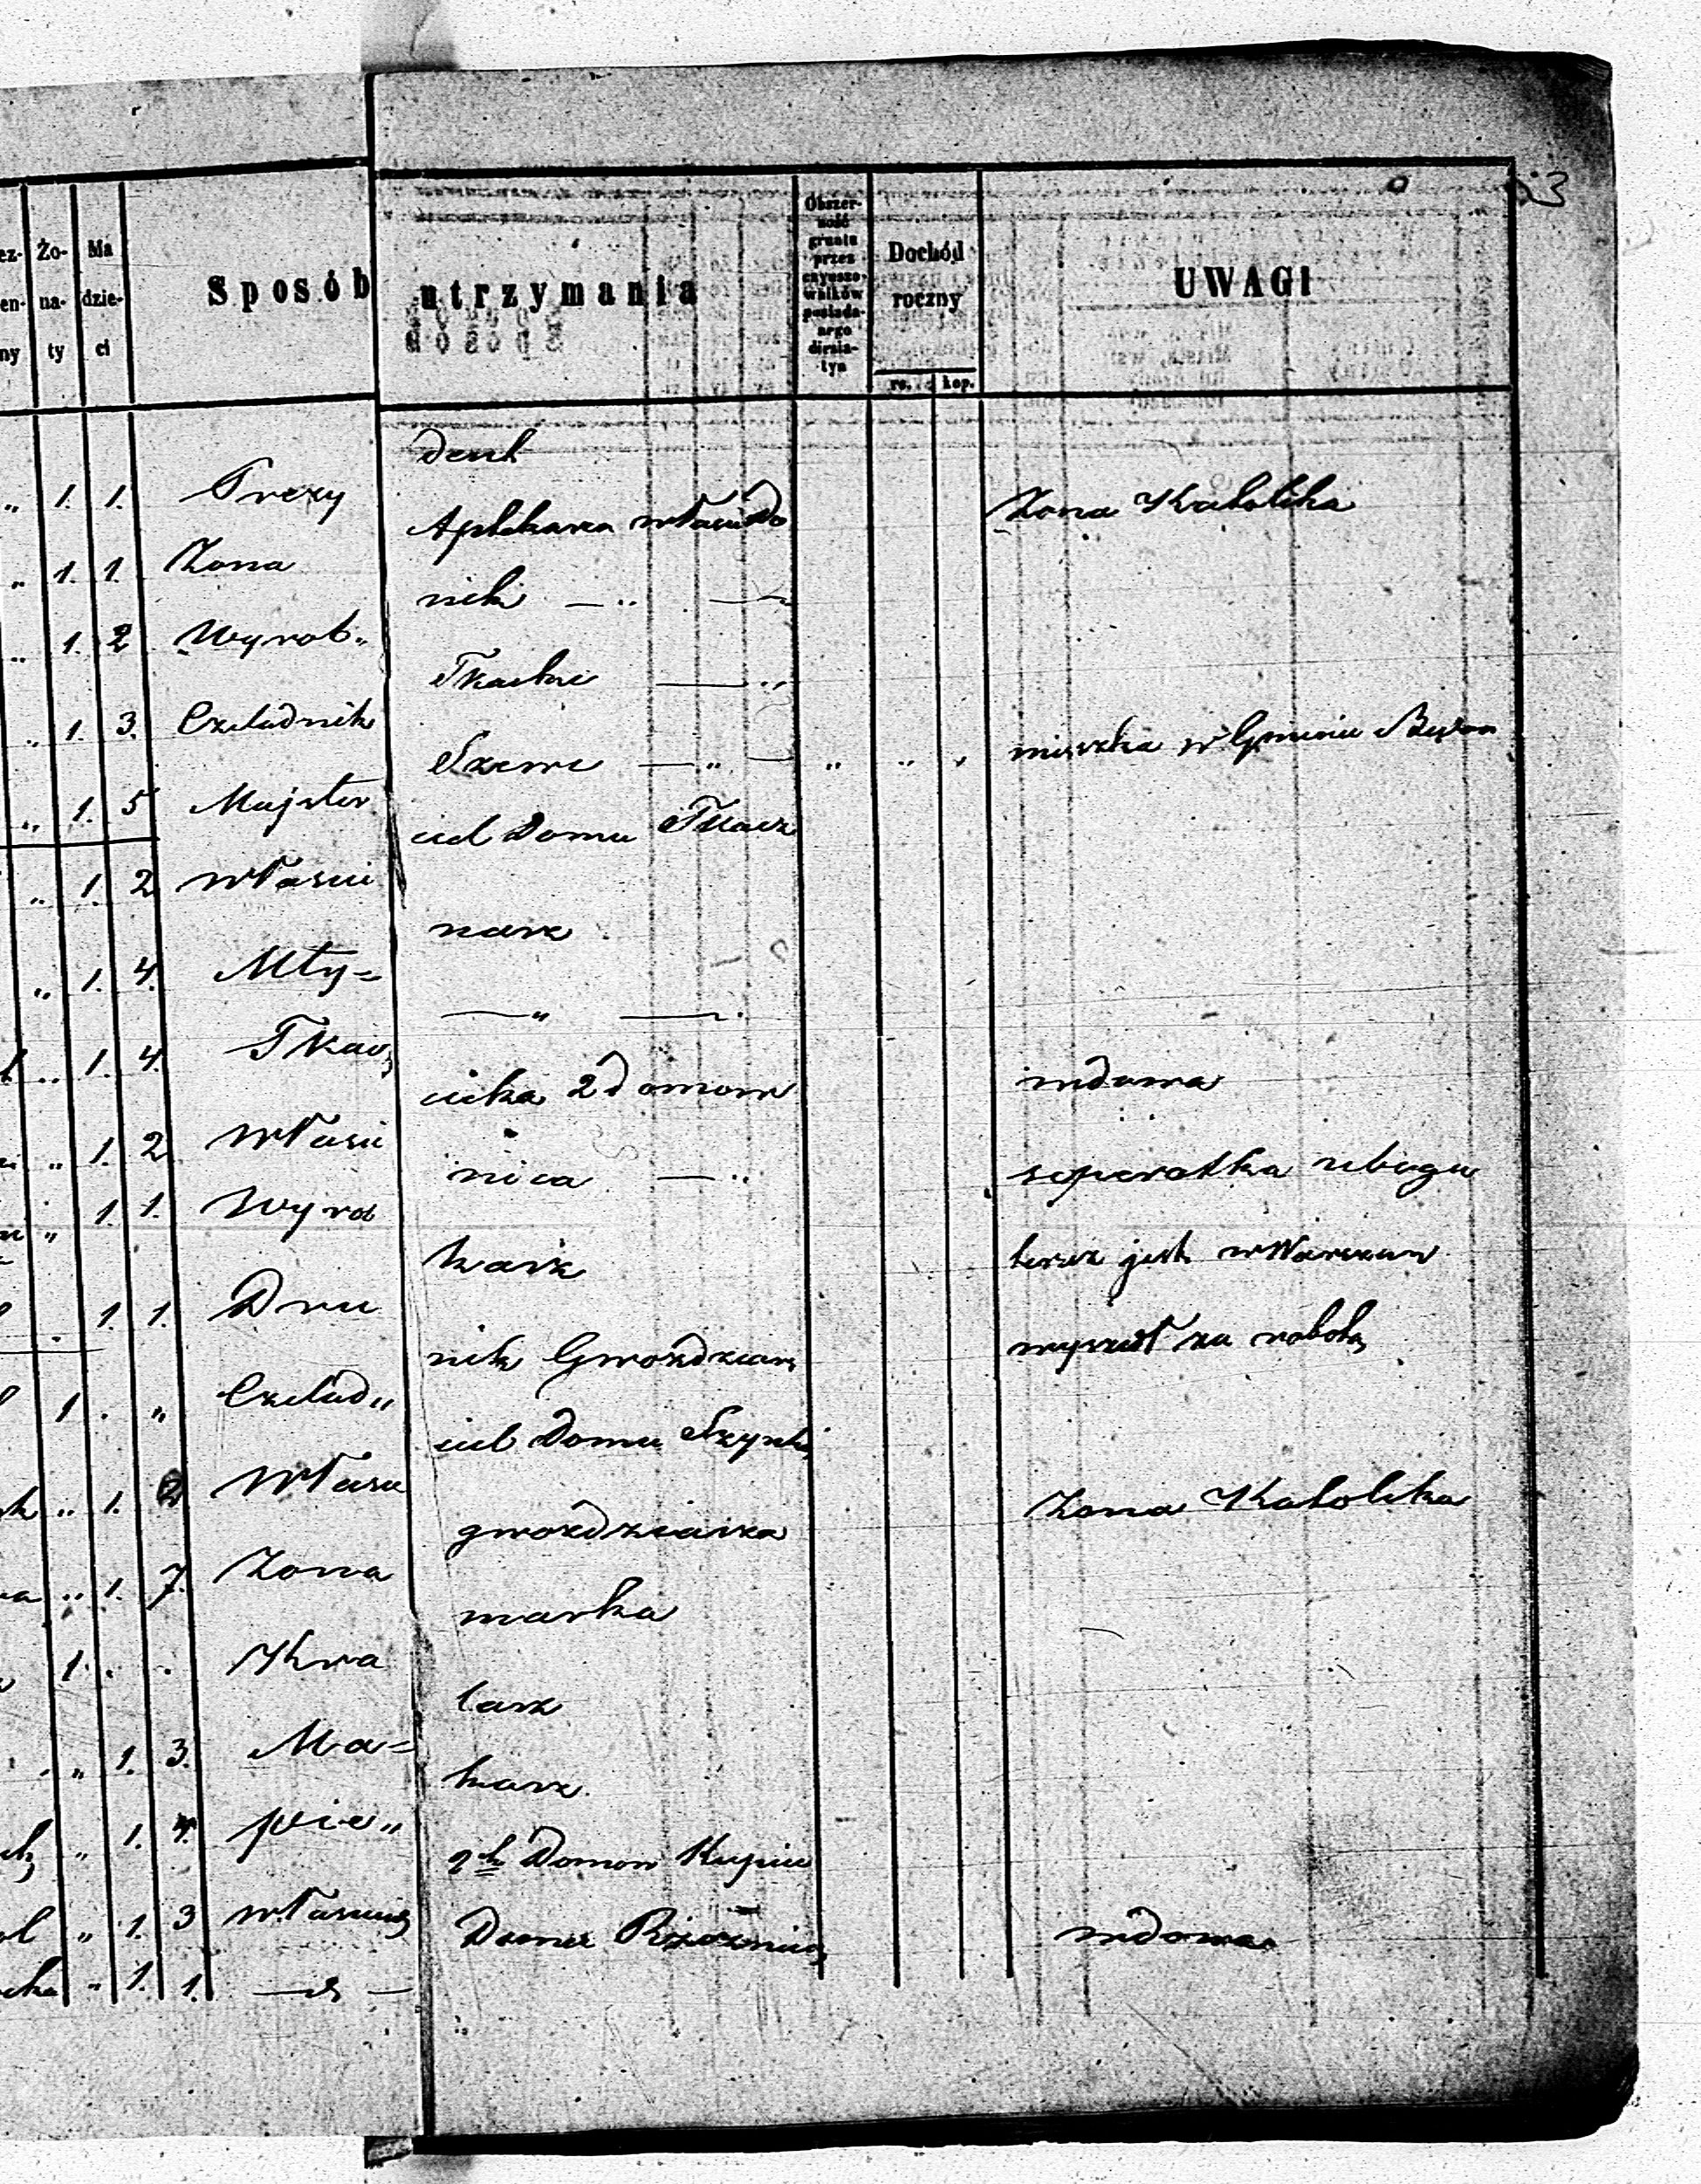 23
ez- Żo- Ma Sposób utrzymania Obszerność gruntu przez czynszowników posiadanego dziesiatyn Dochód roczny UWAGI
en- na- dzie-
ny ty ci
rs. kop.
„ 1. 1. Prezy dent
„ 1. 1. Zona Aptekarza właści Do Zona Katolika
„ 1. 2 Wyrob„ nik — „ —
„ 1. 3. Czeladnik Tkacki — „
„ 1. 5 Majster Szewc — „ — „ „ „ mieszka w Gminie
„ 1. 2 właści ciel Domu Tkacz
„ 1. 4. Mły= narz
„ 1. 4. Tkacz — „ —
„ 1. 2 Właści cielka 2 domow wdowa
„ 1. 1. Wyrob nica — „ separatka uboga
1. 1. Dru karz teraz jest w Warszaw
1 . „ Czelad„ nik Gwozdziars wyszedł za robotą
„ 1. 2 Właści ciel Domu Szynk
„ 1. 7. Zona gwozdziarza Zona Katolika
1. . . Kra marka
„ 1. 3. Ma= larz
„ 1. 4. pie„ karz
„ 1. 3 właścic 2ch Domow Kupiec
„ 1. 1. — d — Domu Rzeznicz wdowa